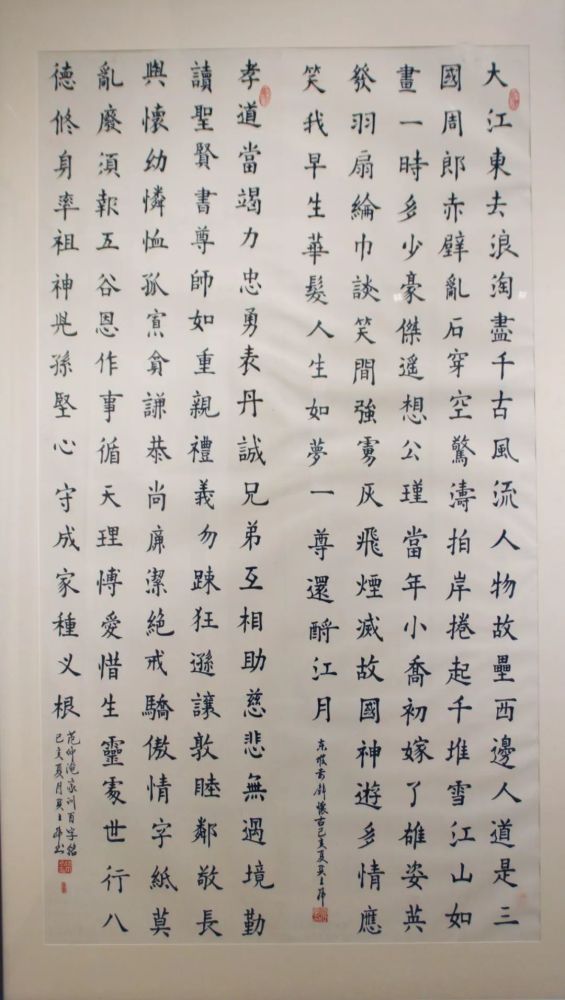 大江東去浪淘盡千古風流人物故壘西邊人道是三
國周郎赤壁亂石穿空驚濤拍岸捲起千堆雪江山如
畫一時多少豪傑遙想公瑾當年小喬初嫁了雄姿英
發羽扇綸巾談笑間強虜灰飛煙滅故國神遊多情應
笑我早生華髮人生如夢一尊還酹江月
東坡懷古己亥夏
孝道當竭力忠勇表丹誠兄弟互相助慈悲無過境勤
讀聖賢書尊師如重親禮義勿踈狂遜讓敦睦鄰敬長
與懷幼憐恤孤寡貧謙恭尚廉潔絕戒驕傲情字紙莫
亂廢須報五谷恩作事循天理博愛惜生靈處世行八
德修身率祖神兒孫堅心守成家種义根
范仲淹家训百字铭
己亥夏月书